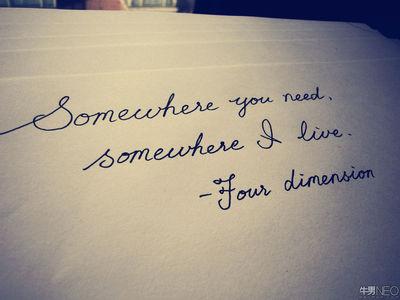 Somewhere you need,
somewhere I live.
-Four dimension
牛男NEO